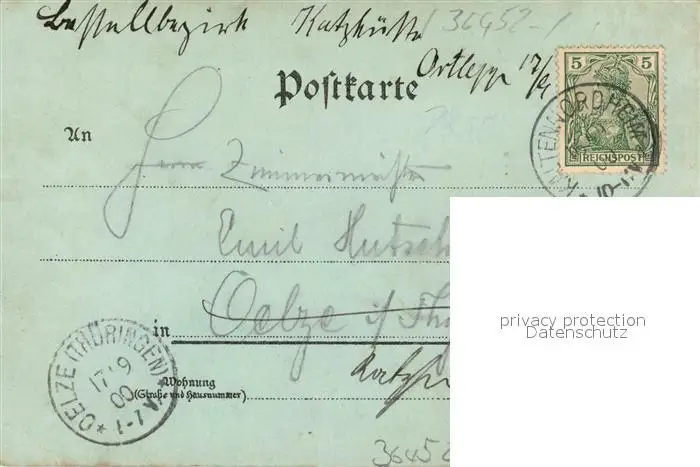 Bestellbezirk Katzhütte 36452-1
Ortlepp 17/9
Postkarte
5 5
REICHSPOST
KALTENNORDHEIM
An
Herrn Zimmermeister
Emil Hutsch
in Oelze i/Th
Katzh
Wohnung
(Straße und Hausnummer)
OELZE (THÜRINGEN)
17 9
00
* 1-7 V *
36452
privacy protection
Datenschutz